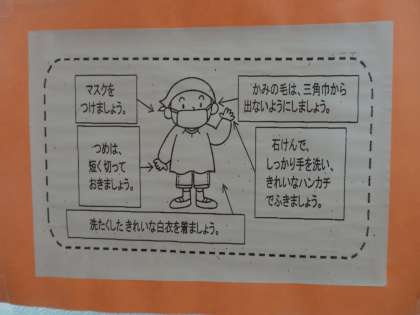 マスクを
つけましょう。
かみの毛は、三角巾から
出ないようにしましょう。
つめは、
短く切って
おきましょう。
石けんで、
しっかり手を洗い、
きれいなハンカチ
でふきましょう。
洗たくした きれいな白衣を着ましょう。